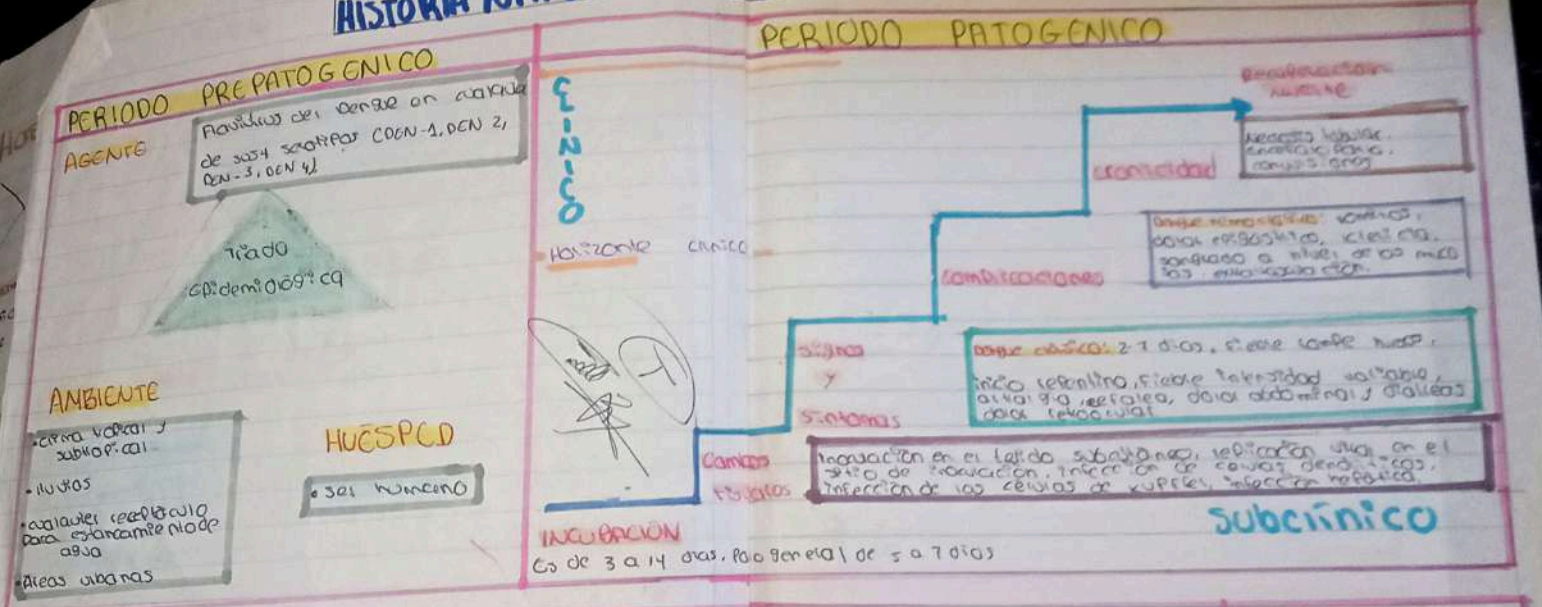 HISTORIA
PERIODO PREPATOGENICO
AGENTE
Flavivirus del Dengue en cualquiera
de sus 4 serotipos (DEN-1, DEN 2,
DEN-3, DEN 4)
Triada
epidemiológica
AMBIENTE
• clima tropical y
subtropical
• lluvias
• cualquier receptáculo
para estancamiento de
agua
• Areas urbanas
HUESPED
• ser humano
PERIODO PATOGENICO
CLINICO
Horizonte clinico
INCUBACION
Es de 3 a 14 dias. general de 5 a 7 dias
Cambios
tisulares
Inoculación en el tejido subcutaneo, replicación viral en el
sitio de inoculación, infección de celulas dendriticas,
infección de las celulas de kupffer, infección hepatica
subclínico
signos
y
sintomas
Dengue clasico: 2-7 dias, Fiebre rompe huesos,
inicio repentino, Fiebre intensidad variable,
cefalea, dolor abdominal y diarreas
dolor retroocular
complicaciones
vomitos,
dolor epigastrico,
sangrado a nivel de
cronicidad
muerte
Necrosis tubular,